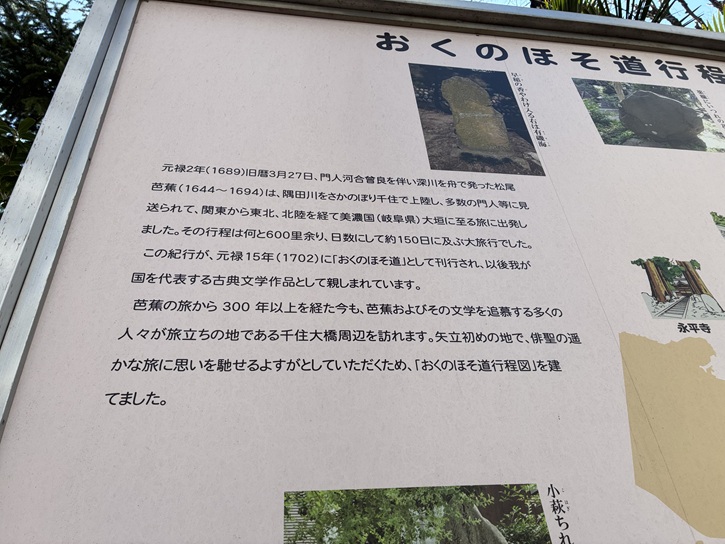 おくのほそ道行程
早稲の香やわけ入る右は有磯海
元禄2年(1689)旧暦3月27日、門人河合曾良を伴い深川を舟で発った松尾
芭蕉(1644～1694)は、隅田川をさかのぼり千住で上陸し、多数の門人等に見
送られて、関東から東北、北陸を経て美濃国(岐阜県)大垣に至る旅に出発し
ました。その行程は何と600里余り、日数にして約150日に及ぶ大旅行でした。
この紀行が、元禄15年(1702)に「おくのほそ道」として刊行され、以後我が
国を代表する古典文学作品として親しまれています。
芭蕉の旅から 300 年以上を経た今も、芭蕉およびその文学を追慕する多くの
人々が旅立ちの地である千住大橋周辺を訪れます。矢立初めの地で、俳聖の遥
かな旅に思いを馳せるよすがとしていただくため、「おくのほそ道行程図」を建
てました。
永平寺
小萩ちれ